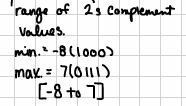 range of 2's complement
values.
min. = -8(1000)
max. = 7(0111)
[-8 to 7]